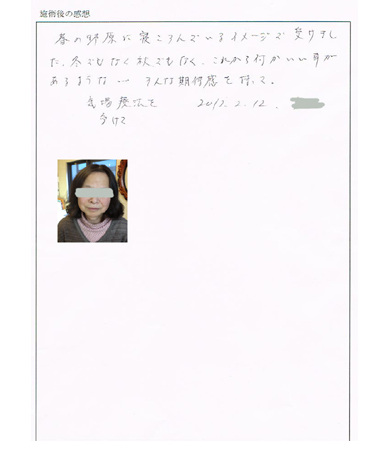 施術後の感想
春の野原に寝ころんでいるイメージで受けまし
た。冬でもなく秋でもなく、これから何かいい事が
あるような… そんな期待感を持って。
療法を 2012. 2. 12.
受けて